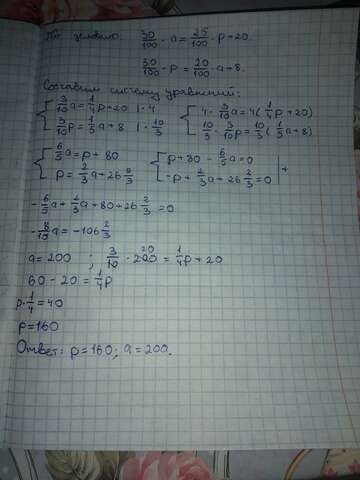 По условию: 30/100 · a = 25/100 · p + 20.
30/100 · p = 20/100 · a + 8.
Составим систему уравнений:
{ 3/10 a = 1/4 p + 20 | · 4 { 4 · 3/10 a = 4(1/4 p + 20)
{ 3/10 p = 1/5 a + 8 | · 10/3 { 10/3 · 3/10 p = 10/3 (1/5 a + 8)
{ 6/5 a = p + 80 { p + 80 - 6/5 a = 0 | +
{ p = 2/3 a + 26 2/3 { -p + 2/3 a + 26 2/3 = 0 |
- 6/5 a + 2/3 a + 80 + 26 2/3 = 0
- 8/15 a = -106 2/3
a = 200 ; 3/10 · 200 = 1/4 p + 20
60 - 20 = 1/4 p
p · 1/4 = 40
p = 160
Ответ: p = 160; a = 200.